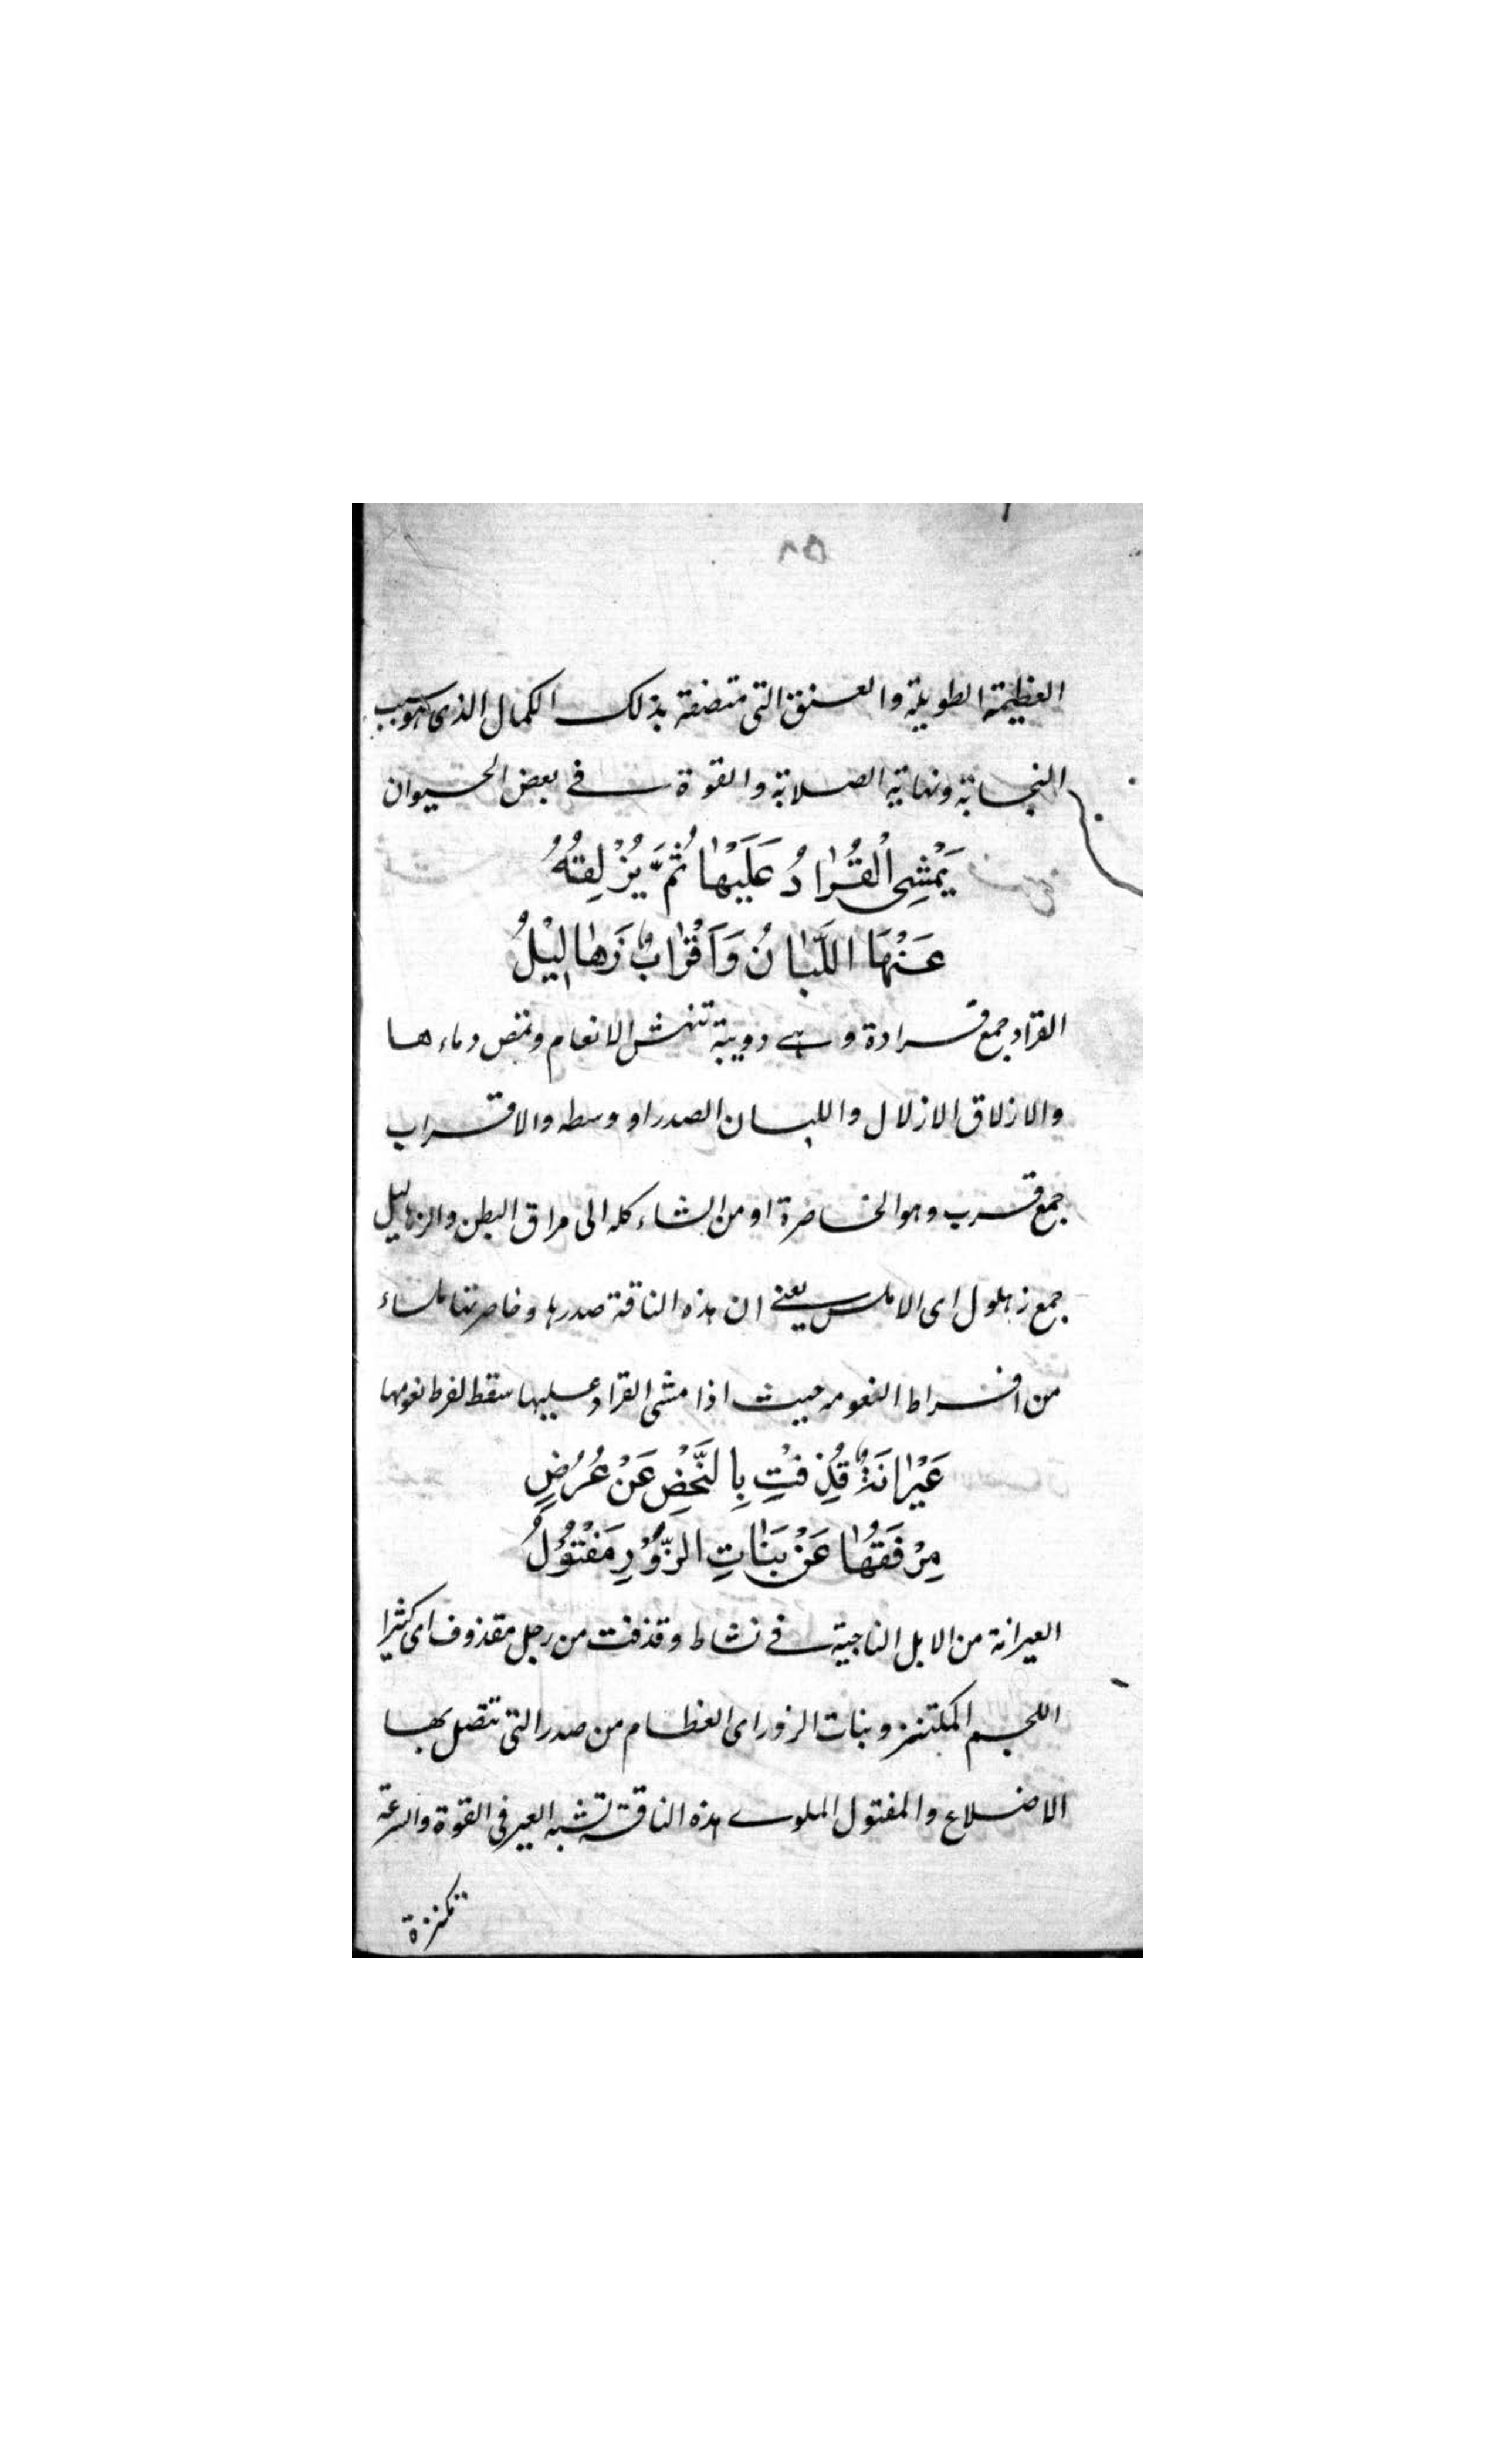 ٨٥
العظيمة الطويلة والعنق التى متصفة بذلك الكمال الذى هو سبب
النجابة ونهاية الصلابة والقوة فى بعض الحيوان
يَمْشِى الْقُرَادُ عَلَيْهَا ثُمَّ يُزْلِقُهُ
عَنْهَا اللَّبَانُ وَاَقْرَابٌ زَهَالِيْلُ
القراد جمع قرادة وهى دويبة تنهش الانعام وتمص دماءها
والازلاق الازلال واللبان الصدر او وسطه والاقراب
جمع قرب وهو الخاصرة او من الشاء كله الى مراق البطن والزهاليل
جمع زهلول اى الاملس يعنى ان هذه الناقة صدرها وخاصرتها ملساء
من افراط النعومه حيث اذا مشى القراد عليها سقط لفرط نعومها
عَيْرَانَةٌ قُذِفَتْ بِالنَّحْضِ عَنْ عُرُضٍ
مِرْفَقُهَا عَنْ بَنَاتِ الزَّوْرِ مَفْتُوْلُ
العيرانة من الابل الناجية فى نشاط وقذفت من رجل مقذوف اى كثير
اللحم المكتنز وبنات الزور اى العظام من صدر التى تتصل بها
الاضلاع والمفتول الملوى هذه الناقة تشبه العير فى القوة والسرعة